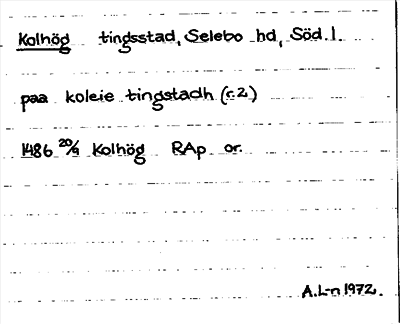 Kolhög tingsstad, Selebo hd, Söd. l.
paa koleie tingstadh (r. 2)
1486 20/9 Kolhög RAp or.
A. L-n 1972.